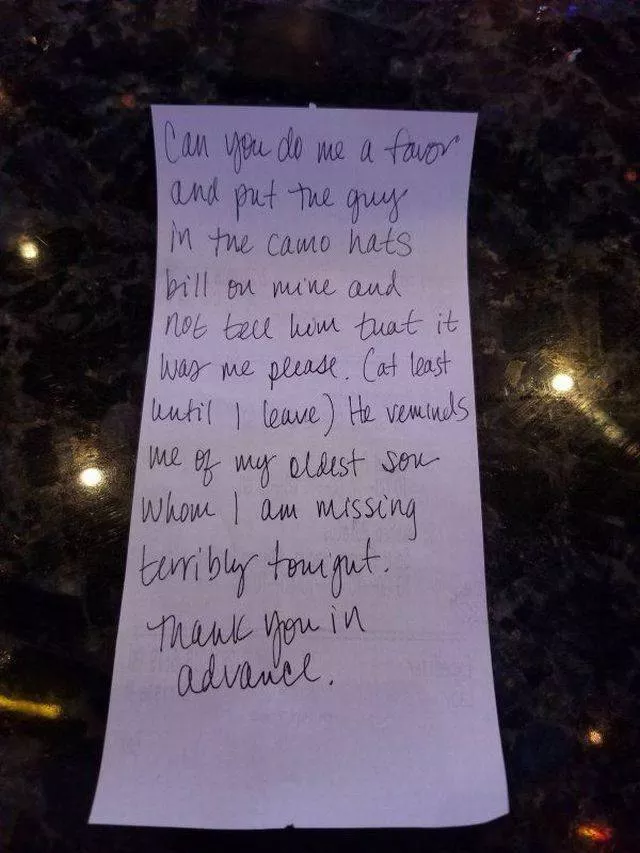 Can you do me a favor
and put the guy
in the camo hats
bill on mine and
not tell him that it
was me please. (at least
until I leave) He reminds
me of my oldest son
whom I am missing
terribly tonight.
Thank you in
advance.